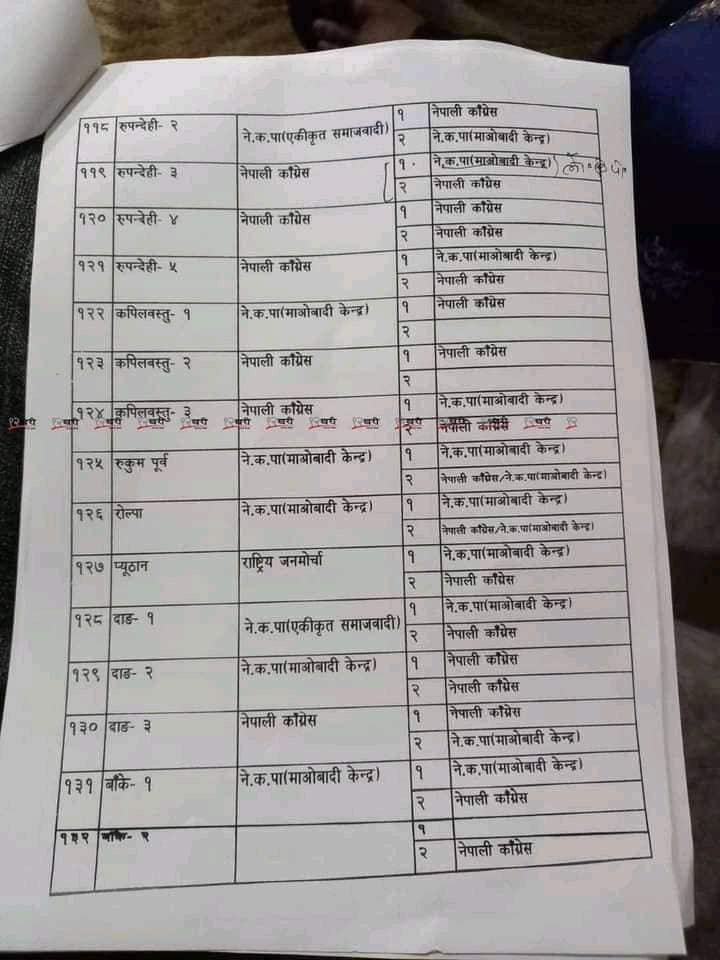 ११८ रुपन्देही- २ ने.क.पा(एकीकृत समाजवादी) १ नेपाली काँग्रेस
२ ने.क.पा(माओबादी केन्द्र)
११९ रुपन्देही- ३ नेपाली काँग्रेस १. ने.क.पा(माओबादी केन्द्र)
२ नेपाली काँग्रेस
१२० रुपन्देही- ४ नेपाली काँग्रेस १ नेपाली काँग्रेस
२ नेपाली काँग्रेस
१२१ रुपन्देही- ५ नेपाली काँग्रेस १ ने.क.पा(माओबादी केन्द्र)
२ नेपाली काँग्रेस
१२२ कपिलवस्तु- १ ने.क.पा(माओबादी केन्द्र) १ नेपाली काँग्रेस
२
१२३ कपिलवस्तु- २ नेपाली काँग्रेस १ नेपाली काँग्रेस
२
१२४ कपिलवस्तु- ३ नेपाली काँग्रेस १ ने.क.पा(माओबादी केन्द्र)
२ नेपाली काँग्रेस
१२५ रुकुम पूर्व ने.क.पा(माओबादी केन्द्र) १ ने.क.पा(माओबादी केन्द्र)
२ नेपाली काँग्रेस/ने.क.पा(माओबादी केन्द्र)
१२६ रोल्पा ने.क.पा(माओबादी केन्द्र) १ ने.क.पा(माओबादी केन्द्र)
२ नेपाली काँग्रेस/ने.क.पा(माओबादी केन्द्र)
१२७ प्यूठान राष्ट्रिय जनमोर्चा १ ने.क.पा(माओबादी केन्द्र)
२ नेपाली काँग्रेस
१२८ दाङ- १ ने.क.पा(एकीकृत समाजवादी) १ ने.क.पा(माओबादी केन्द्र)
२ नेपाली काँग्रेस
१२९ दाङ- २ ने.क.पा(माओबादी केन्द्र) १ नेपाली काँग्रेस
२ नेपाली काँग्रेस
१३० दाङ- ३ नेपाली काँग्रेस १ नेपाली काँग्रेस
२ ने.क.पा(माओबादी केन्द्र)
१३१ बाँके- १ ने.क.पा(माओबादी केन्द्र) १ ने.क.पा(माओबादी केन्द्र)
२ नेपाली काँग्रेस
१३२ बाँके- २ १
२ नेपाली काँग्रेस